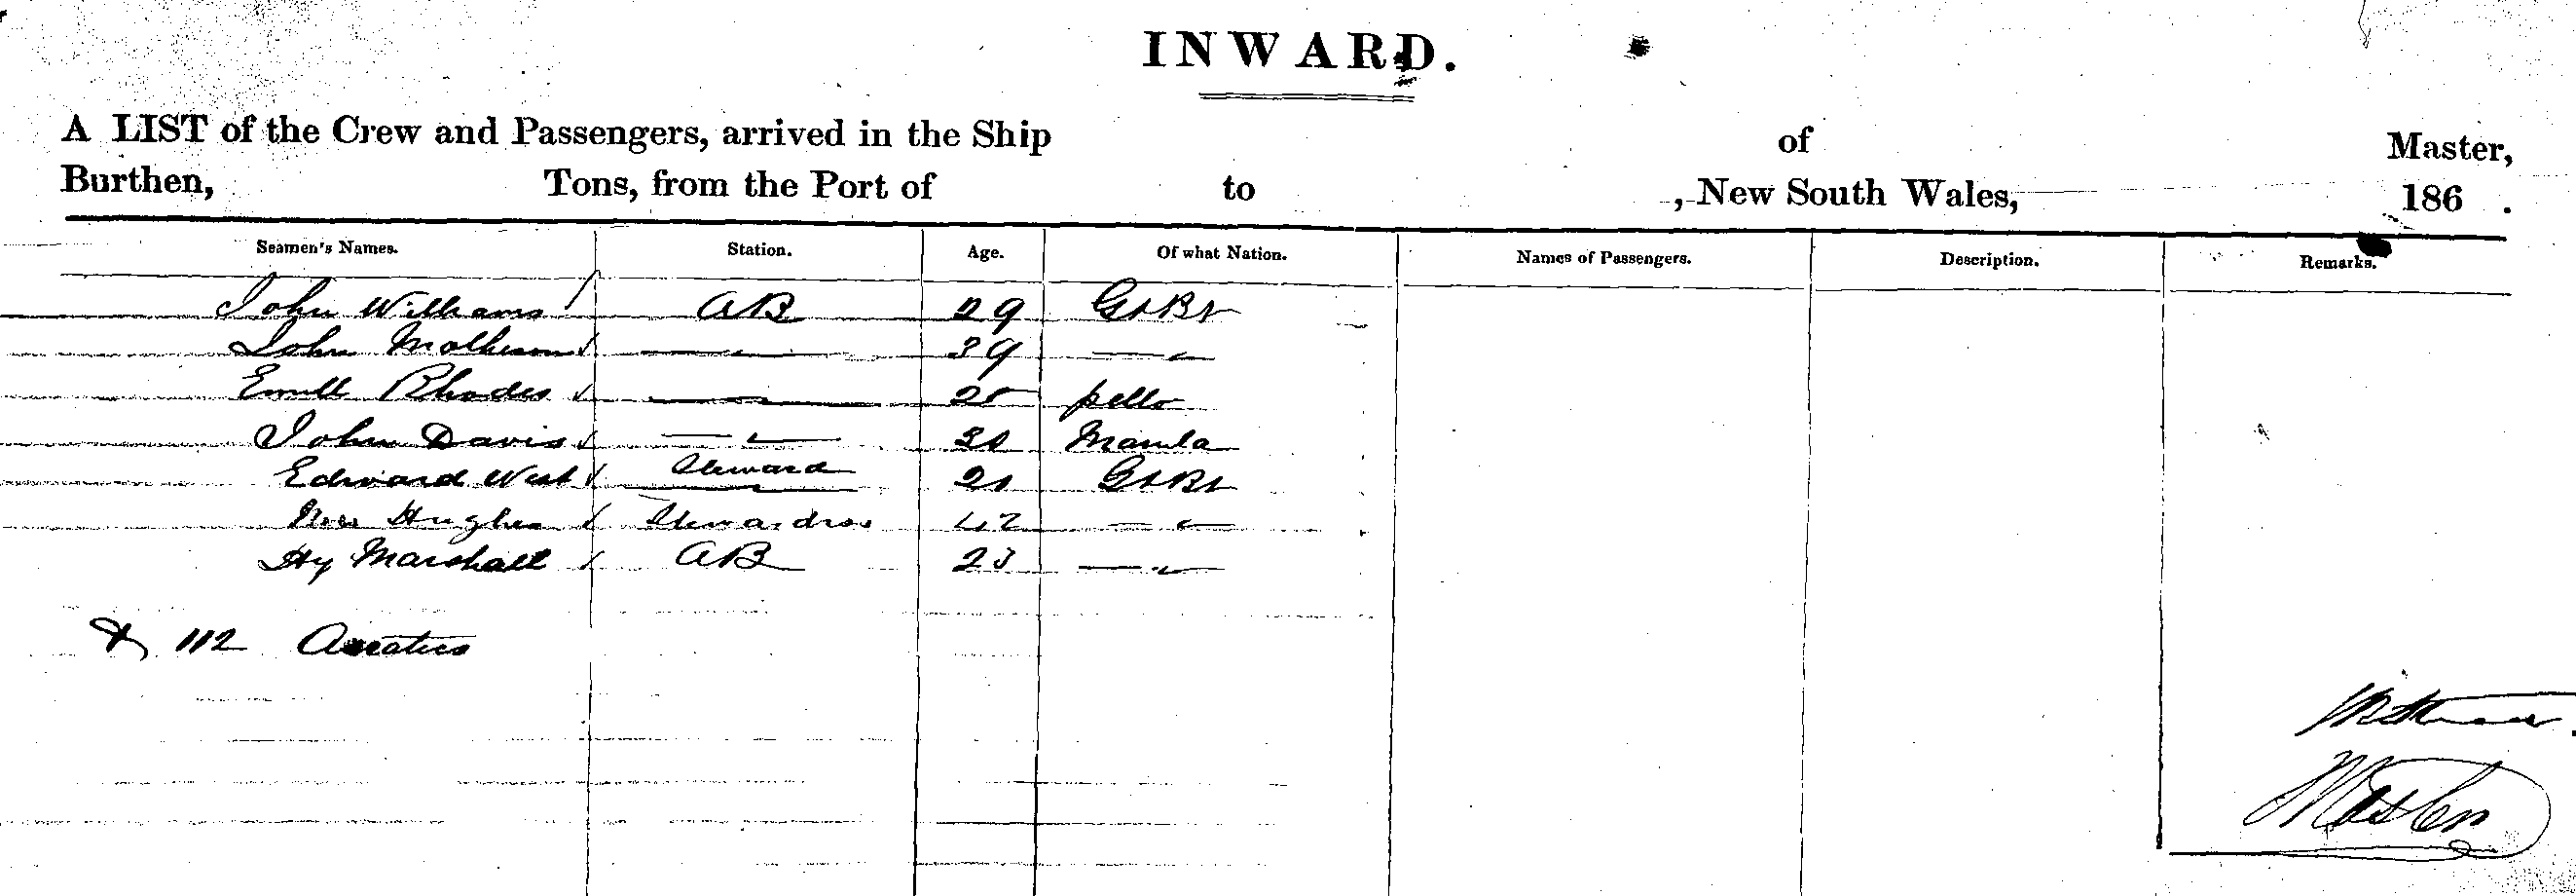 INWARD.
A LIST of the Crew and Passengers, arrived in the Ship of Master,
Burthen, Tons, from the Port of to , New South Wales, 186 .
Seamen's Names. Station. Age. Of what Nation. Names of Passengers. Description. Remarks.
John Williams AB 29 Gt Br
John 39
Rhodes 25
John Davis Manila
Edward West Steward 21 Gt Br
Mrs Hughes Stewardess 42
Hy Marshall AB 23
& 112 Asiatics
Master